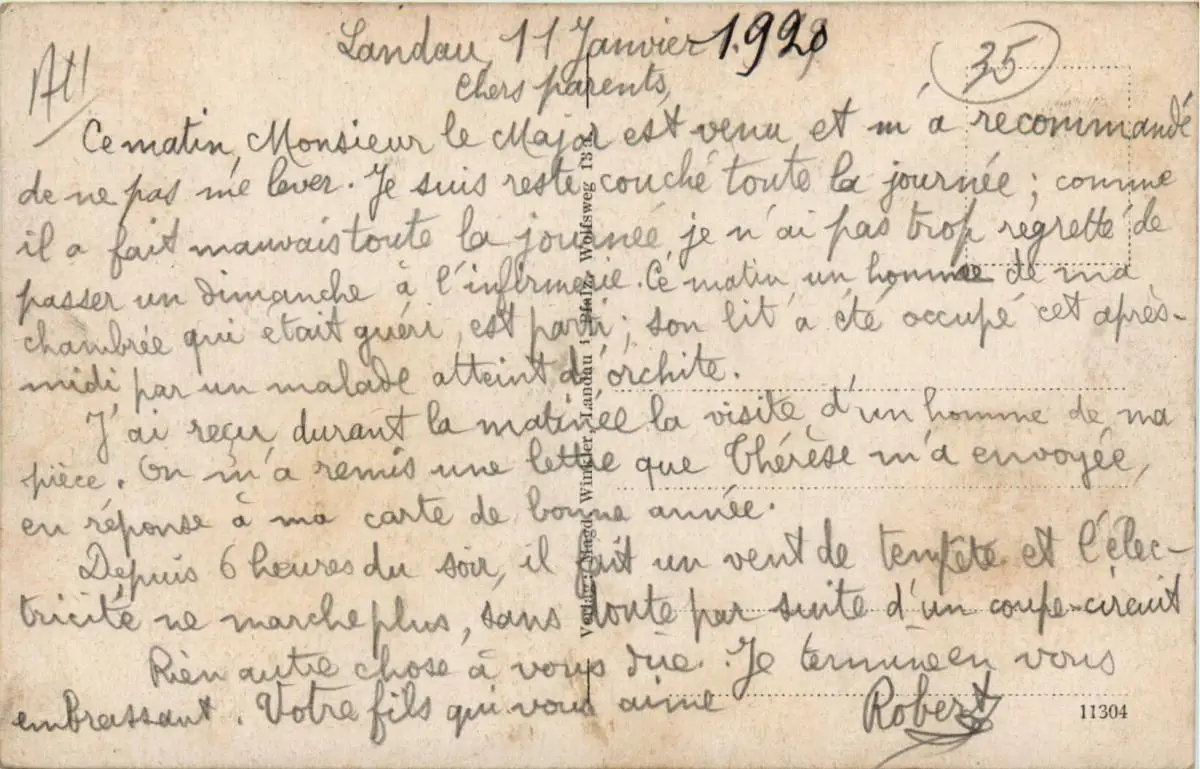 Landau, 11 Janvier 1920
35
Chers parents,
Ce matin, Monsieur le Major est venu et m'a recommandé
de ne pas me lever. Je suis resté couché toute la journée ; comme
il a fait mauvais toute la journée je n'ai pas trop regretté de
passer un dimanche à l'infirmerie. Ce matin, un homme de ma
chambrée qui était guéri, est parti ; son lit a été occupé cet après-
midi par un malade atteint d'orchite.
J'ai reçu durant la matinée la visite d'un homme de ma
pièce. On m'a remis une lettre que Thérèse m'a envoyée,
en réponse à ma carte de bonne année.
Depuis 6 heures du soir, il fait un vent de tempête et l'élec-
tricité ne marche plus, sans doute par suite d'un coupe-circuit
Rien autre chose à vous dire. Je termine en vous
embrassant. Votre fils qui vous aime
Robert
11304
Verlag: Magda Winkler, Landau Pfalz, Wolfsweg